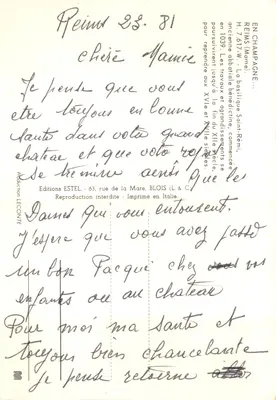 Reims 23. 81
chère Mamie
Je pense que vous
etre toujours en bonne
sante dans votre grand
chateau et que votre
se termine ainsi que les
Dames qui vous entourent
J'espere que vous avez passé
un bon Pacque chez vous vos
enfants ou au chateau
Pour moi ma sante et
toujours bien chancelante
je pense retourne aller
EN CHAMPAGNE...
REIMS (Marne)
H. 7.617/W - La basilique Saint-Remi,
ancienne abbatiale bénédictine, commencée
en 1039. Les travaux et agrandissements se
poursuivirent jusqu'à la fin du XIIe siècle,
pour reprendre aux XVIe et XVIIe siècles
Editions ESTEL - 63, rue de la Mare, BLOIS (L & C)
Reproduction interdite - Imprimé en Italie
Collection LECONTE